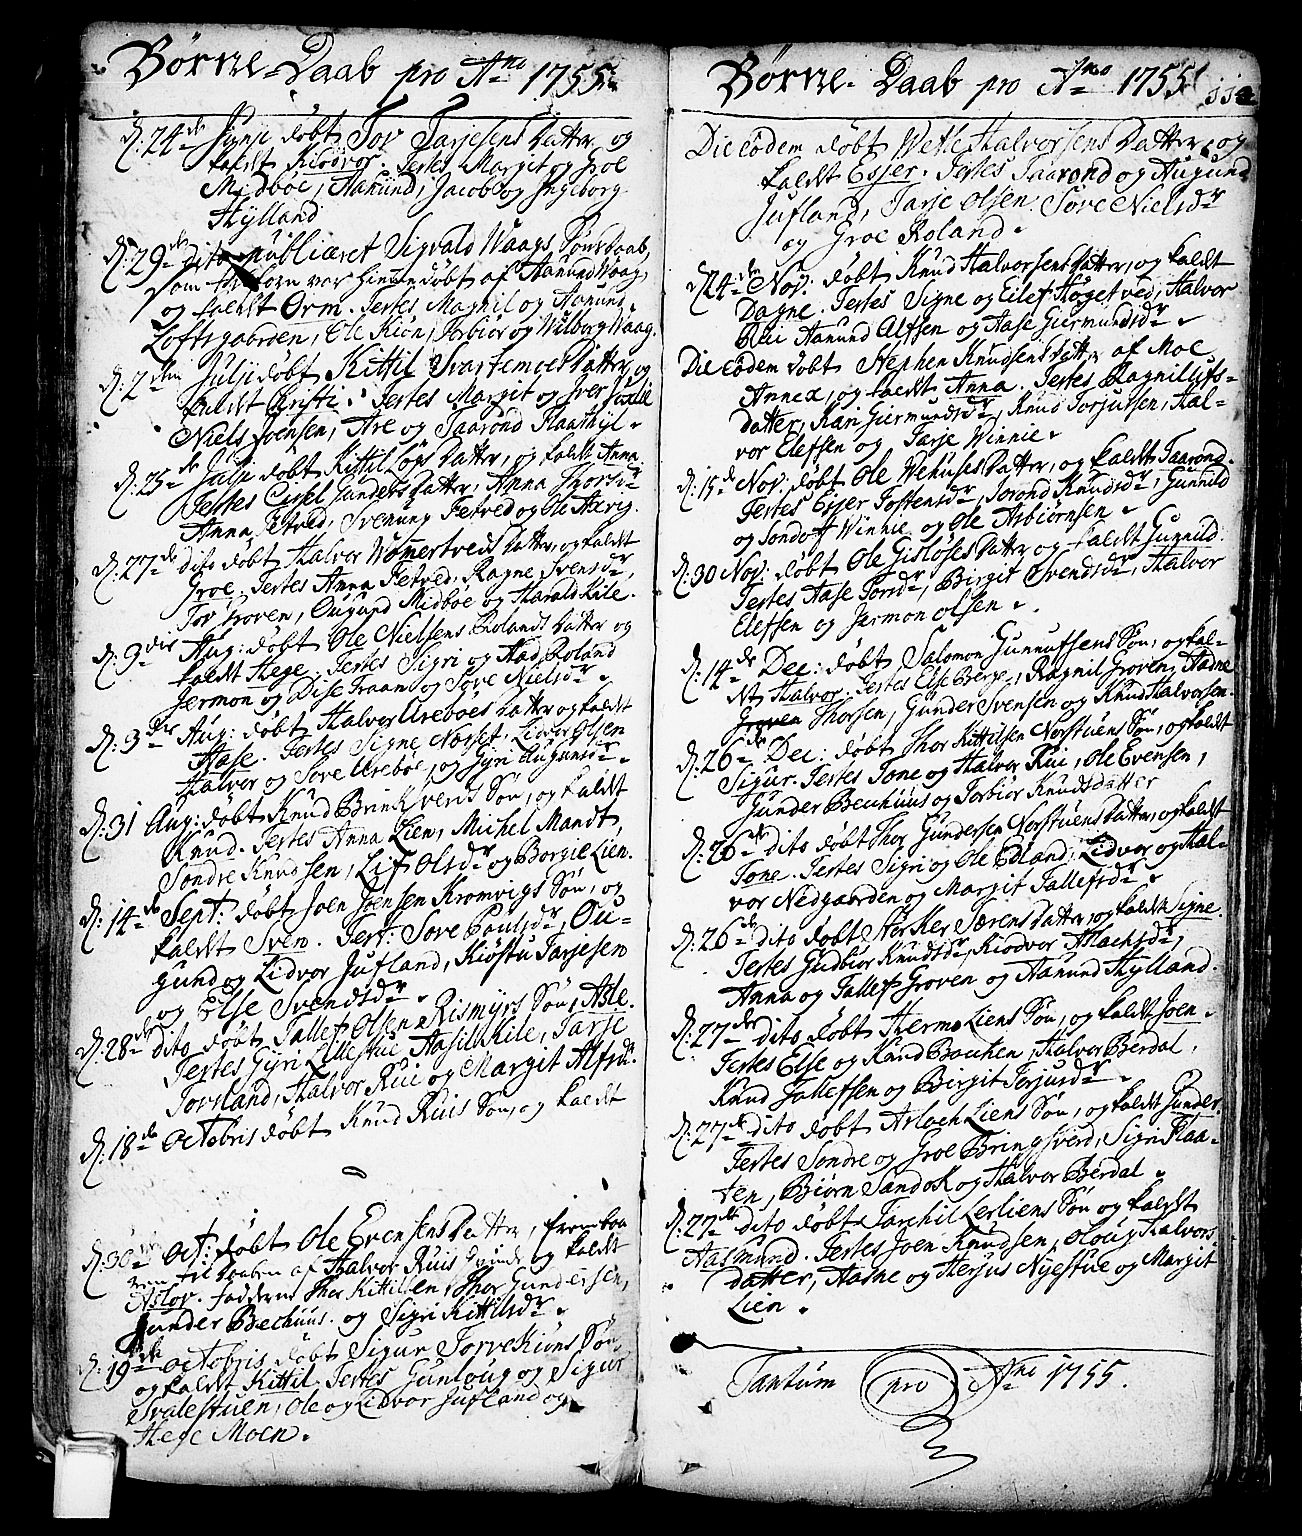 Børne-Daab pro Ano 1755.
d: 24de Junji døbt Tov Tarjesens Datter og
kaldt Kiodvor. Testes Margit og Groe
Midboe, Aanund, Jacob og Ingeborg
Hylland
d: 29de dito publiceret Sigvald Waags Søns daab,
som var døbt af Aanund Waag,
og kaldt Orm. Testes Magnil og Aanund
Loftsgaarden, Ole Kion, Torbiør og Wilborg Waag.
d: 2den Julji døbt Kittil Svartemoes Datter og
kaldt Christi. Testes Margit og Iver
Niels Svensen, Are og Taarond Flaathyl.
d: 25de Julji døbt Kittil Løps Datter, og kaldt Anna
Testes Cishel Gunders Datter, Anna Thorsdr
Anna Fetved, Svenung Fetved og Ole Aarig.
d: 27de dito døbt Halvor Womertveds Datter, og kaldt
Groe. Testes Anna Fetved, Ragne Svensdr,
Tov Groven, Ougund Midboe og Harald Kile.
d: 9de Aug: døbt Ole Nielsens Rolands Datter og
kaldt Hege. Testes Sigri og Aad Roland
Jermon og Dise Traan og Søve Nielsdr.
d: 3de Aug: døbt Halvor Ureboes Datter og kaldt
Aase. Testes Signe Norset, Lidvor Olsen
Halvor og Søve Ureboe, og Gyri Augunsdr.
d: 31 Aug: døbt Knud Brinkverds Søn, og kaldt
Knud. Testes Anna Lien, Michel Mandt,
Søndre Knudsen, Lif Olsdr og Borgil Lien.
d: 14de Sept: døbt Joen Joensen Kromvigs Søn, og
kaldt Sven. Test: Søve Poulsdr, Ou-
gund og Lidvor Jufland, Kiøstu Tarjesen
og Else Svendsdr.
d: 28de dito døbt Tallef Olsen Rismyrs Søn, Asle.
Testes Gyri Lillestui, Aasil Kile, Tarje
Tovsland, Halvor Rui og Margit Alfsdr.
d: 18de Octobris døbt Knud Ruis Søn, og kaldt
d: 30te Oct: døbt Ole Evensens Datter, frembaa
ren til daaben af Halvor Ruis Qvinde og kaldt
Aslov. Fadderne Thor Kittilsen, Thor Gundersen,
Gunder Bechuus og Sigri Kittilsdr.
d: 19de Octobris døbt Sigur Torvekiøns Søn
og kaldt Kittil. Testes Gunloug og Sigur
Svalestuen, Ole og Lidvor Jufland og
Hege Moen.
Børne-Daab pro Ano 1755
Die eodem døbt Wetle Halvorsens Datter, og
kaldt Esjer. Testes Taarond og Augund
Jufland, Tarje Olsen. Søve Nielsdr
og Groe Roland.
d: 24de Nov: døbt Knud Halvorsens Datter, og kaldt
Dagne. Testes Signe og Eilef Høgetved, Halvor
Rui Aanund Alfsen og Aase Giermundsdr.
Die eodem døbt Stephen Knudsens Datter af Moe
Annex, og kaldt Anna. Testes Ragnil Lifs-
datter, Kari Giermundsdr, Knud Torjussen, Hal-
vor Elefsen og Tarje Winnie.
d: 15de Nov: døbt Ole Wehuses Datter, og kaldt Taarond.
Testes Esjer Tostensdr, Jorond Knudsdr, Gunnild
og Sondof Winnie og Ole Asbiørnsen.
d: 30 Nov: døbt Ole Gisløses Datter og kaldt Gunnild.
Testes Aase Torsdr, Birgit Svendsdr, Halvor
Elefsen og Jermon Olsen.
d: 14de Dec: døbt Salomon Gunnufsens Søn, og kal-
dt Halvor. Testes Else Berge, Ragnil Groven, Aadne
Thorsen, Gunder Svensen og Knud Halvorsen.
d: 26de Dec: døbt Thor Kittilsen Norstuens Søn, og kaldt
Sigur. Testes Tone og Halvor Rui, Ole Evensen,
Gunder Bechuus og Torbiør Knudsdatter
d: 26de dito døbt Thor Gundersen Norstuens Datter, og kaldt
Tone. Testes Sigri og Ole Edland, Lidvor og Hal-
vor Nedgaarden og Margit Tallefsdr.
d: 26de dito døbt Størker Særens Datter, og kaldt Signe.
Testes Gudbiør Knudsdr, Kiodvor Aslachsdr,
Anna og Tallef Groven og Aanund Hylland.
d: 27de dito døbt Hermo Liens Søn, og kaldt Joen.
Testes Else og Knud Bouhen, Halvor Berdal,
Knud Tallefsen og Birgit Torjusdr.
d: 27de dito døbt Asloch Liens Søn, og kaldt Gunder.
Testes Søndre og Groe Bringsverd, Sign Flaa-
ten, Biørn Sandok og Halvor Berdal.
d: 27de dito døbt Tarchil Lesliens Søn og kaldt
Aasmund. Testes Joen Knudsen, Aloug Halvors-
datter, Aasne og Herjus Nyestue og Margit
Lien.
Tantum pro Ano 1755.